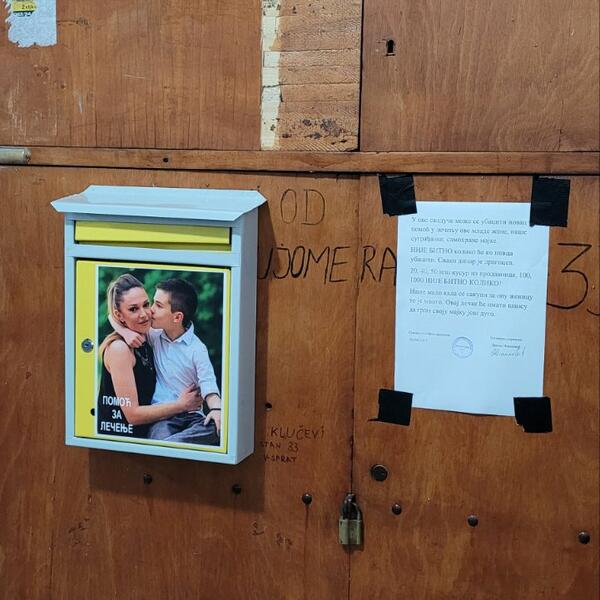 OD
VODOMERA
3
У ове сандуче може се убацити новац
помоћ у лечењу ове младе жене, наше
суграђанке, самохране мајке.
НИЈЕ БИТНО колико ће ко новца
убацити. Сваки динар је драгоцен.
20, 40, 50 или кусур из продавнице, 100,
1000 НИЈЕ БИТНО КОЛИКО!
Наше мало када се сакупи за ову женицу
то је много. Овај дечак ће имати шансу
да грли своју мајку још дуго.
ПОМОЋ
ЗА
ЛЕЧЕЊЕ
KLJUČEVI
STAN 33
V-SPRAT